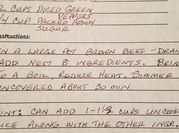 2 CUPS DICED GREEN
PEPPERS
1/4 CUP PACKED BROWN
SUGAR
Instructions:
IN A LARGE POT BROWN BEEF - DRAIN
ADD NEXT 8 INGREDIENTS. BRING
TO A BOIL, REDUCE HEAT. SIMMER
UNCOVERED ABOUT 30 MIN.
CAN ADD 1-1 1/2 CUPS UNCOO
ICE ALONG WITH THE OTHER INGR